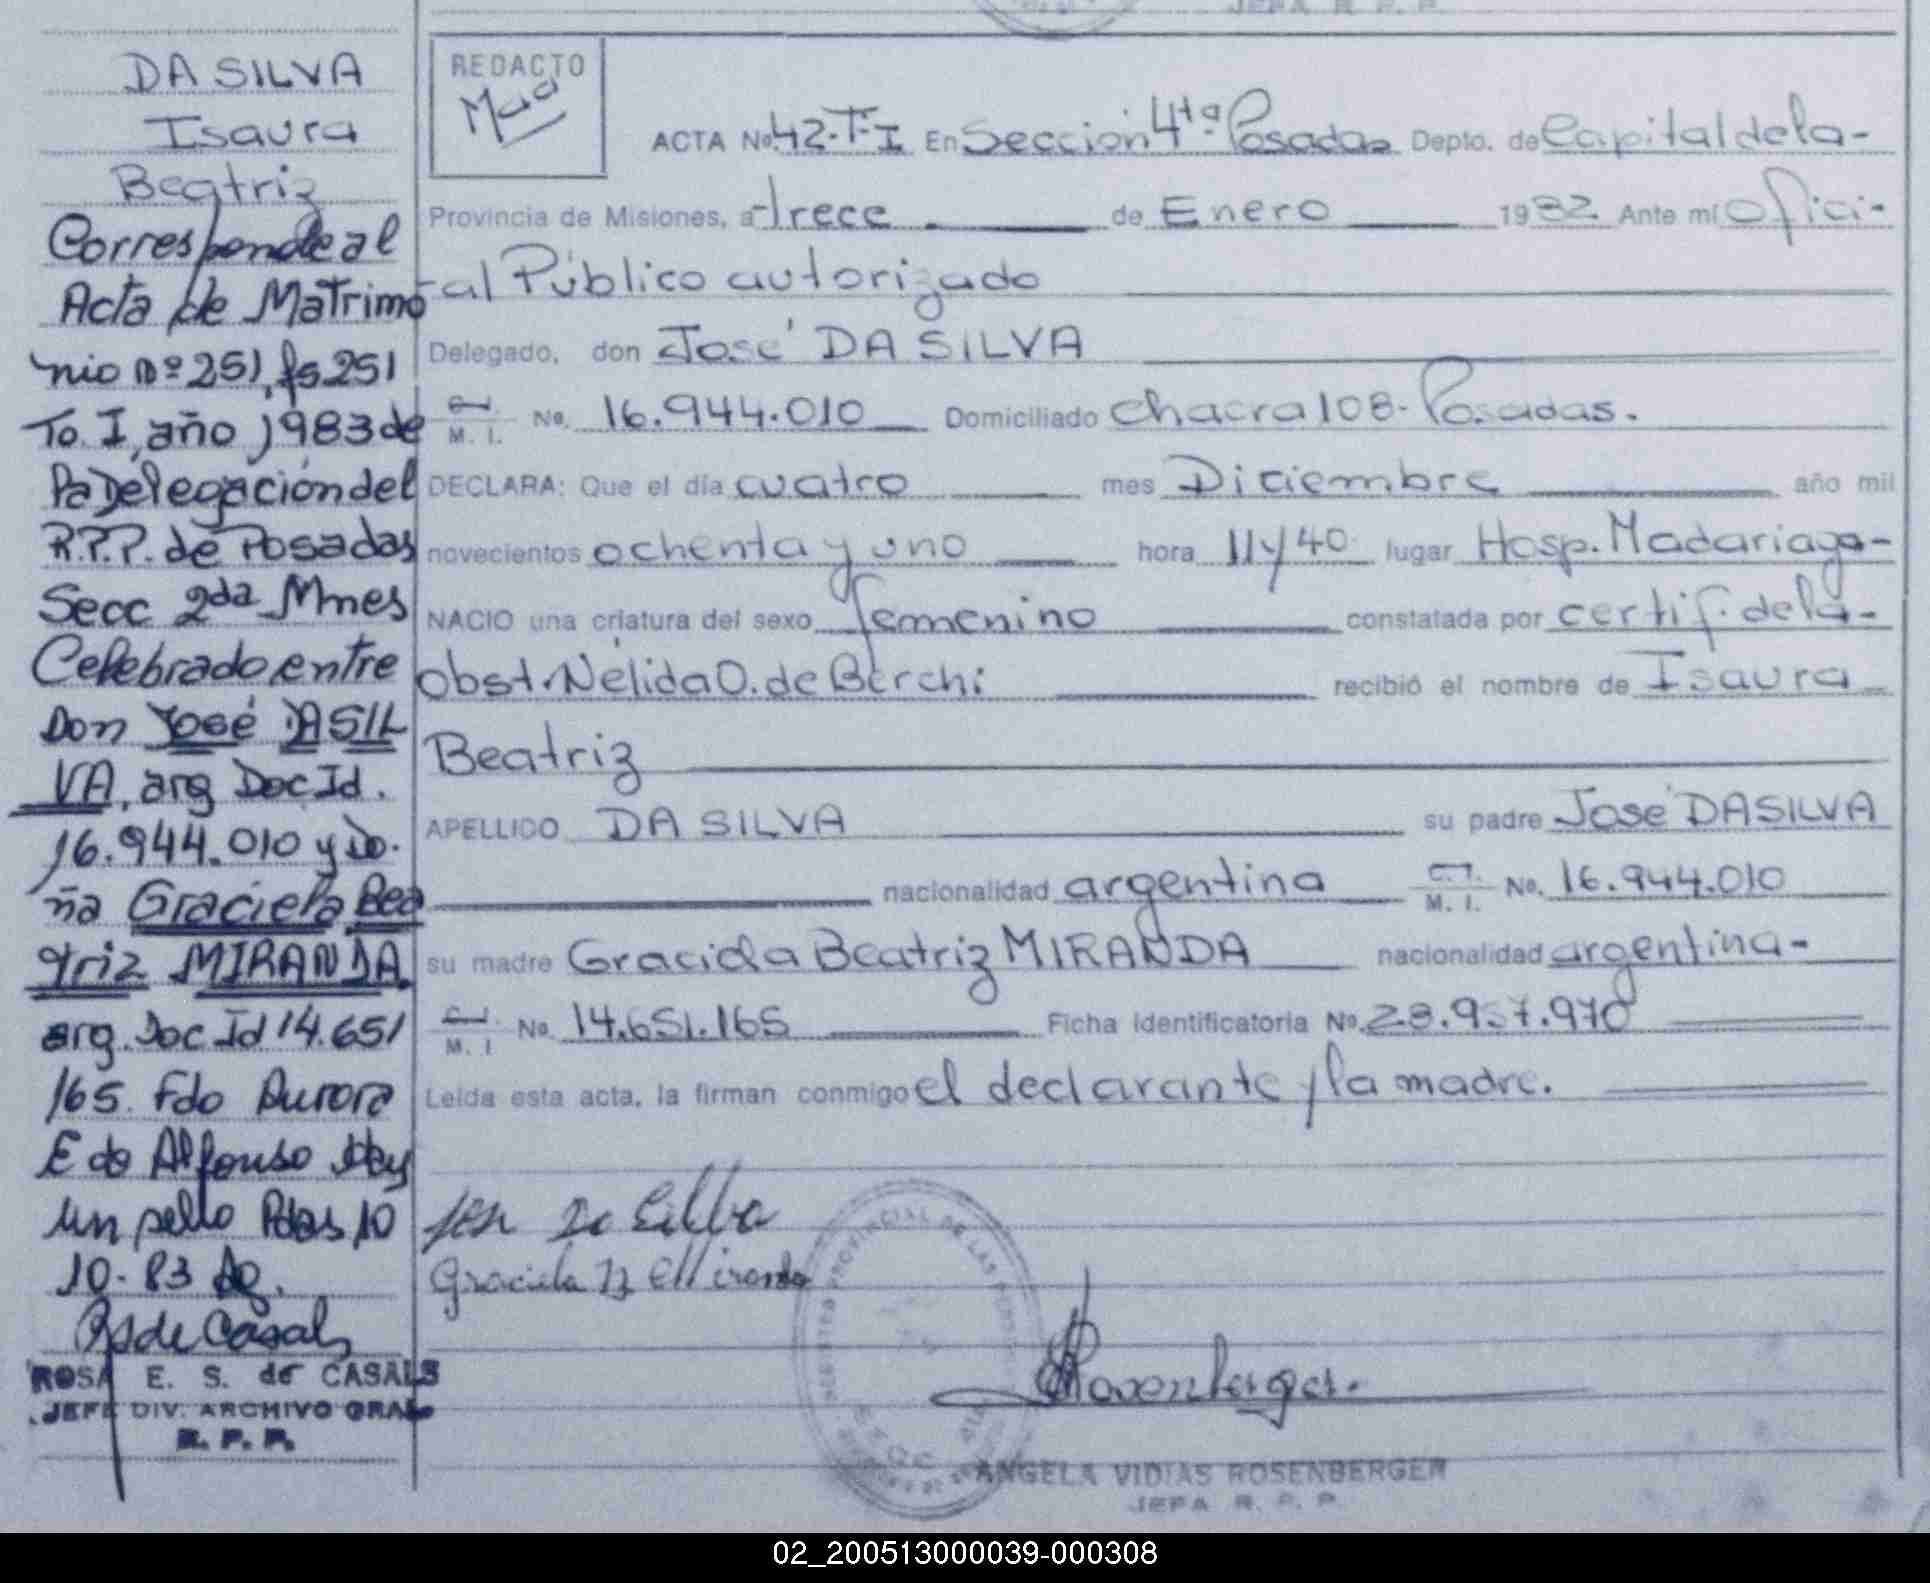 JEFA R. P. P.
DA SILVA
Isaura
Beatriz
Corresponde al
Acta de Matrimo
nio Nº 251, fs 251
To. I, año 1983 de
la Delegación del
R.P.P. de Posadas
Secc 2da Mnes
Celebrado entre
Don José DA SIL
VA, arg Doc Id.
16.944.010 y Do-
ña Graciela Bea
triz MIRANDA
arg. Doc Id 14.651
165. Fdo Aurora
E de Alfonso Hay
un sello Pdas 10
10-83
RS de Casals
ROSA E. S. de CASALS
JEFE DIV. ARCHIVO GRAL
R. P. P.
REDACTO
ACTA No. 42-T-I En Sección 4ta Posadas Depto. de Capital de la-
Provincia de Misiones, a trece de Enero 1982 Ante mí Ofici-
-al Público autorizado
Delegado, don José DA SILVA
C.I. M. I. No. 16.944.010 Domiciliado Chacra 108- Posadas.
DECLARA: Que el día cuatro mes Diciembre año mil
novecientos ochenta y uno hora 11 y 40 lugar Hosp. Madariaga-
NACIO una criatura del sexo femenino constatada por certif. de la-
obst. Nélida O. de Berchi recibió el nombre de Isaura
Beatriz
APELLIDO DA SILVA su padre José DA SILVA
nacionalidad argentina C.I. M. I. No. 16.944.010
su madre Graciela Beatriz MIRANDA nacionalidad argentina-
C.I. M. I No. 14.651.165 Ficha Identificatoria No. 28.957.970
Leída esta acta, la firman conmigo el declarante y la madre.
Da Silba
Graciela B Miranda
Rosenberger.
ANGELA VIDIAS ROSENBERGER
JEFA R. P. P.
02_200513000039-000308